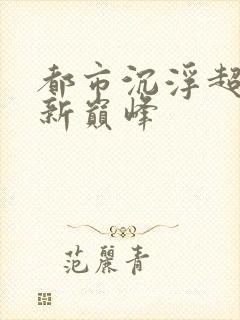 都市沉浮超
新巅峰
范丽青